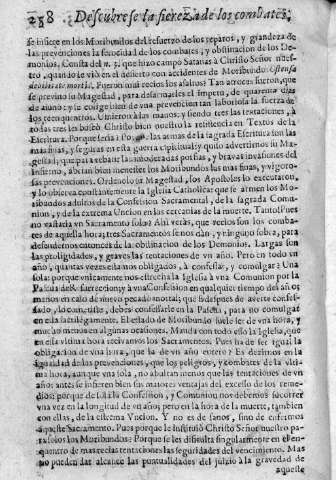 238 Descubrese la fiereza de los combates,
se infiere en los Moribundos del refuerzo de los reparos, y grandeza de
las prevenciones la ferocidad de los combates, y obstinacion de los De-
monios. Consta del n. 5. que hizo campo Satanàs à Christo Señor nues-
tro, quando le viò en el desierto con accidentes de Moribundo:
Fueron muy recios los asaltos: Tan atroces fueron, que
se previno su Magestad, para desarmarles el impetu, de quarenta dias
de ayuno: y se consiguiente de vna prevencion tan laboriosa la fuerza de
los reenquentros. Vinieron à las manos; y siendo tres las tentaciones, à
todas tres les buscò Christo bien nuestro la resistencia en Textos de la
Escritura. Porque seria? Porque las armas de la sagrada Escritura son las
mas finas, y seguras en esta guerra espiritual; y quiso advertirnos su Ma-
gestad; que para rebatir las moderadas porfias, y bravas invasiones del
infierno, abrian bien menester los Moribundos las mas finas, y vigoro-
sas prevenciones. Ordenòlo su Magestad, los Apostoles lo executaron,
y lo observa constantemente la Iglesia Catholica: que se armen los Mo-
ribundos adultos de la Confession Sacramental, de la sagrada Comu-
nion, y de la extrema Vncion en las cercanias de la muerte. Tanto? Pues
no bastaria vn Sacramento solo? Ahi veràs, que recios son los comba-
tes de aquella hora; tres Sacramentos se nos dàn, y ninguno sobra, para
defendernos entonces de la obstinacion de los Demonios. Largas son
las prolixidades, y graves las tentaciones de vn año. Pero en todo vn
año, quantas vezes estamos obligados, à confessar, y comulgar? Una
sola: porque vnicamente nos estrecha la Iglesia à vna Comunion por la
Pascua de Resurreccion; y à vna Confession en qualquier tiempo del año;
menos en caso de nuevo pecado mortal; que si despues de averte confes-
sado, le cometiste, debes confessarle en la Pascua, para no comulgar
en essa tal obligacion. El estado de Moribundo suele ser de vna hora, y
mucho menos en algunas ocasiones. Manda con todo esso la Iglesia, que
en esta vltima hora recivamos los Sacramentos. Pues ha de ser igual la
obligacion de vna hora, que la de vn año entero? Es dezirnos en la
igualdad de las prevenciones, que los peligros, y combates de la vlti-
ma hora, aunque vna sola, no abultan menos que las tentaciones de vn
año: antes se infieren bien sus mayores ventajas del excesso de los reme-
dios: porque de solas la Confession, y Comunion nos devemos socorrer
vna vez en la longitud de vn año; pero en la hora de la muerte, tambien
con ellas, de la extrema Vncion. Y no es de sanos, sino de enfermos
aqueste Sacramento. Pues porque le instituyò Christo Señor nuestro pa-
ra solos los Moribundos? Porque se les dificulta singularmente en el en-
quentro de mas rezias tentaciones las seguridades del vencimiento. Mas
no pueden dar alcance las puntualidades del juizio à la gravedad de
aqueste